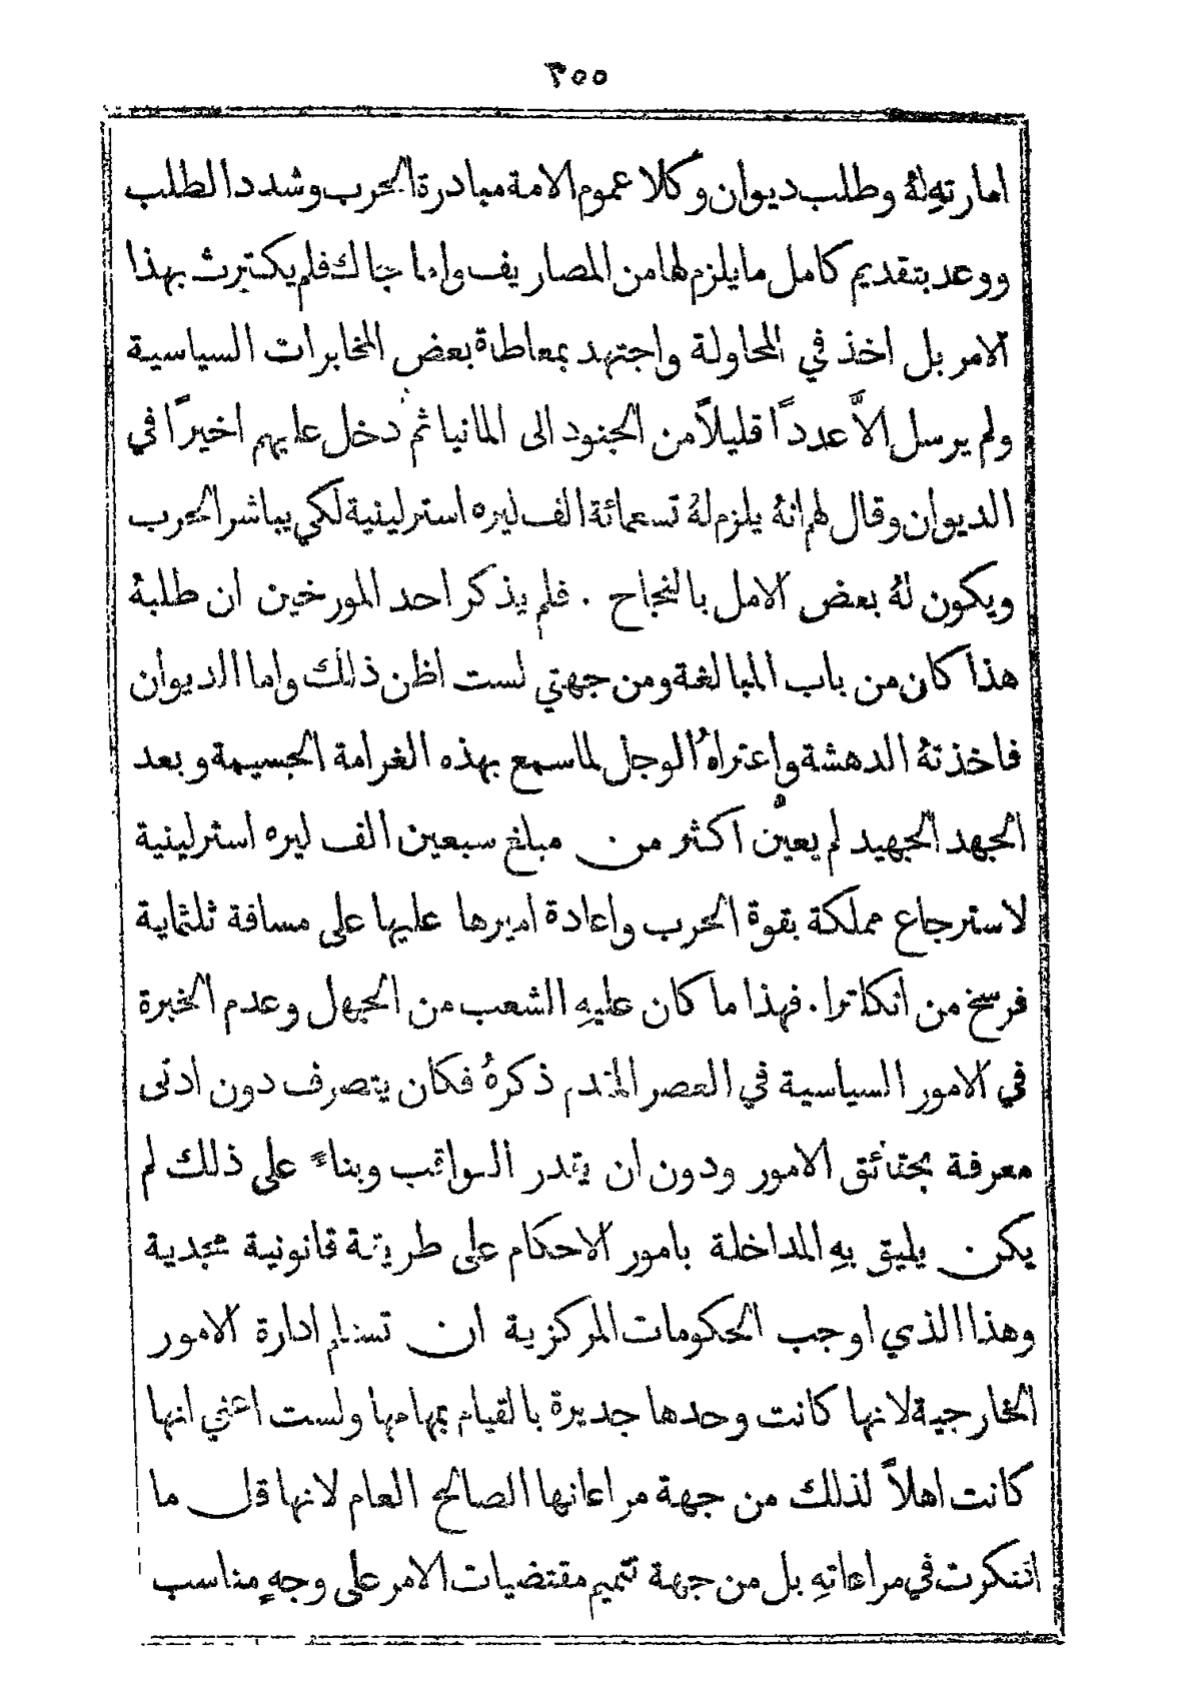 ٣٥٥
امارتهِ لهُ وطلب ديوان وكلا عموم الامة مبادرة الحرب وشدد الطلب
ووعد بتقديم كامل ما يلزم لها من المصاريف واما جاك فلم يكترث بهذا
الامر بل اخذ في المحاولة واجتهد بمعاطاة بعض المخابرات السياسية
ولم يرسل الاَّ عددًا قليلاً من الجنود الى المانيا ثم دخل عليهم اخيرًا في
الديوان وقال لهم انهُ يلزم لهُ تسعمائة الف ليره استرلينية لكي يباشر الحرب
ويكون لهُ بعض الامل بالنجاح . فلم يذكر احد المورخين ان طلبهُ
هذا كان من باب المبالغة ومن جهتي لست اظن ذلك واما الديوان
فاخذتهُ الدهشة واعتراهُ الوجل لما سمع بهذه الغرامة الجسيمة وبعد
الجهد الجهيد لم يعيّن اكثر من مبلغ سبعين الف ليره استرلينية
لاسترجاع مملكة بقوة الحرب واعادة اميرها عليها على مسافة ثلثماية
فرسخ من انكلترا . فهذا ما كان عليهِ الشعب من الجهل وعدم الخبرة
في الامور السياسية في العصر المتقدم ذكرهُ فكان يتصرف دون ادنى
معرفة بحقائق الامور ودون ان يقدر العواقب وبناءً على ذلك لم
يكن يليق بهِ المداخلة بامور الاحكام على طريقة قانونية مجدية
وهذا الذي اوجب الحكومات المركزية ان تستلم ادارة الامور
الخارجية لانها كانت وحدها جديرة بالقيام بمهامها ولست اعني انها
كانت اهلاً لذلك من جهة مراعاتها الصالح العام لانها قل ما
افتكرت في مراعاتهِ بل من جهة تتميم مقتضيات الامر على وجهٍ مناسب